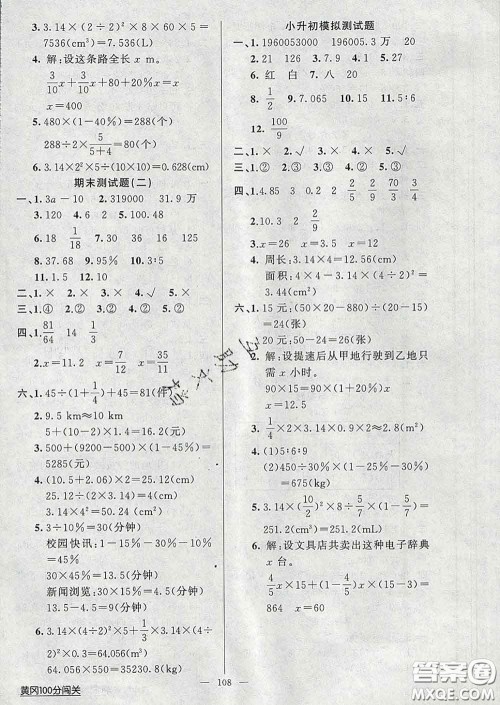 3. 3.14×(2÷2)²×8×60×5=
7536(cm³)=7.536(L)
4. 解：设这条路全长 x m。
3/10x+3/10x+80+20%x=x
x=400
5. 480×(1-40%)=288(个)
288÷2×5/(5+4)=80(个)
6. 3.14×2²×5÷(10×10)=0.628(cm)
期末测试题(二)
一、1. 3a-10 2. 319000 31.9 万
3. 120 4. 2 5. 100.48
6. 18 1/18 7. 12.5
8. 37.68 9. 95% 10. 1/5
11. 1.5 12. 10
二、1. × 2. × 3. × 4. √ 5. ×
三、1. ④ 2. ② 3. ② 4. ① 5. ③
四、1. 81/64 14 1/3
2. x=11.2 x=7/12 x=35/11
六、1. 45÷(1+1/4)+45=81(件)
2. 9.5 km≈10 km
5+(10-2)×1.4=16.2(元)
3. 500+(9200-500)×(1-45%)=
5285(元)
4. (10.5+2.06)×2=25.12(cm)
25.12÷2÷3.14=4(cm)
3.14×4²=50.24(cm²)
5. 3÷10%=30(分钟)
校园快讯：1-15%-30%-10%
=45%
30×45%=13.5(分钟)
新闻浏览：30×15%=4.5(分钟)
13.5-4.5=9(分钟)
6. 3.14×(4÷2)²×5+1/3×3.14×
(4÷2)²×0.3=64.056(m³)
64.056×550=35230.8(kg)
小升初模拟测试题
一、1. 1960053000 196005.3 万 20
2. 120 3. 24 4. 160 5. 45
6. 红 白 7. 八 20
8. 1/2 9. 7.065 10. 15 11. 5∶6
12. 100/9
二、1. × 2. √ 3. × 4. × 5. √
三、1. ② 2. ③ 3. ① 4. ② 5. ③
四、1. 4.85 3 2/9
2. 10.3 0.2 2/9
3. x=26 x=12
4. 周长：3.14×4=12.56(cm)
面积：4×4-3.14×(4÷2)²=
3.44(cm²)
六、1. 15 元：(50×20-880)÷(20-15)
=24(张)
20元：50-24=26(张)
2. 解：设提速后从甲地行驶到乙地只
需 x 小时。
90×15=90×(1+20%)x
x=12.5
3. 1/4×2×3.14×2×2=6.28(m²)
4. (1)5∶6∶9
(2)450÷30%×(1-30%-25%)
=675(kg)
5. 3.14×(10/2)²×8×5/7÷(1-5/7)=
251.2(cm³)=251.2(mL)
6. 解：设文具店共卖出这种电子辞典
x 台。
4/5x×15+(1-4/5)x×(-18)=
864 x=60
108
黄冈100分闯关
答案圈
MXQE.COM